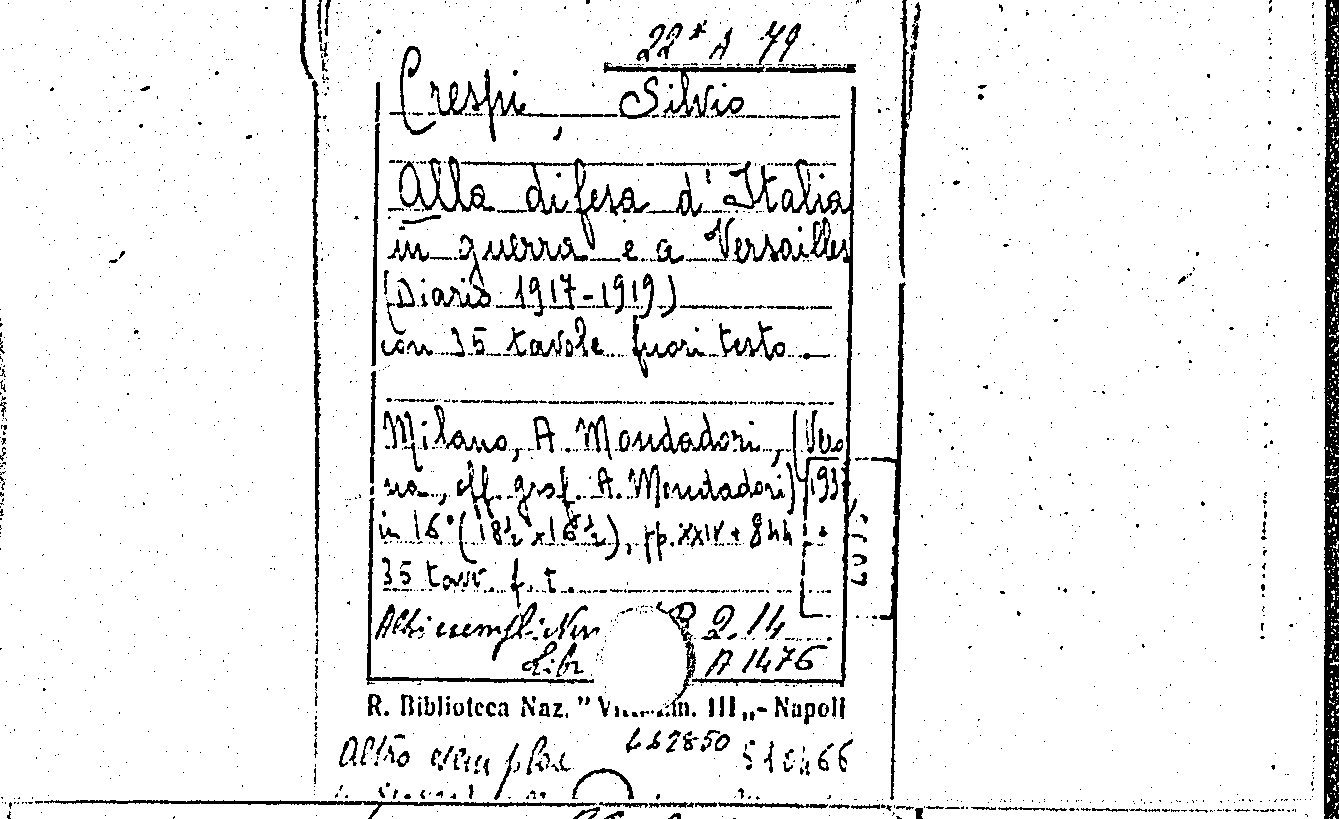 22* A 79
Crespi, Silvio
Alla difesa d'Italia
in guerra e a Versailles
(Diario 1917-1919)
con 35 tavole fuori testo.
Milano, A. Mondadori, (Vero
na, off. graf. A. Mondadori) 193
in 16° (18½ x 16½), pp. XXIV + 844 +
35 tavv. f. t.
Altri esempl: 2.14
A 1476
R. Biblioteca Naz. " III „- Napoli
Altro esemplare